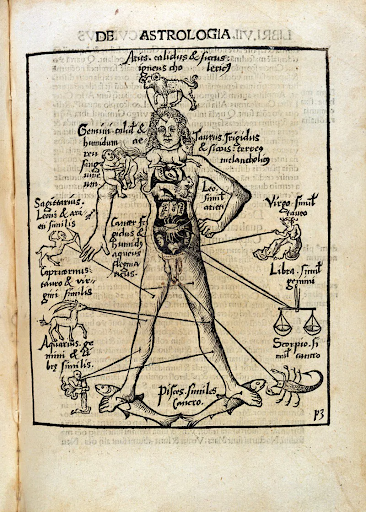 DE ASTROLOGIA
Aries. calidus & siccus
igneus cho lericus
Gemini. calid9 &
humidum ae
reū
sang
uine
um.
Taurus. frigidus
& siccus. terreus
melancholicus
Leo.
simil
arieti
Sagitarius.
Leoni & ari
eti similis
Cancer fri
gidus &
humid9
aqueus
flegma
ticus.
Virgo. simil
tauro
Capricornus.
tauro & vir
gini similis
Libra. simil
gemini
Aquarius. ge
mini & li
bre similis.
Scorpio. si
mil cancro
Pisces. similes
Cancro.
P3